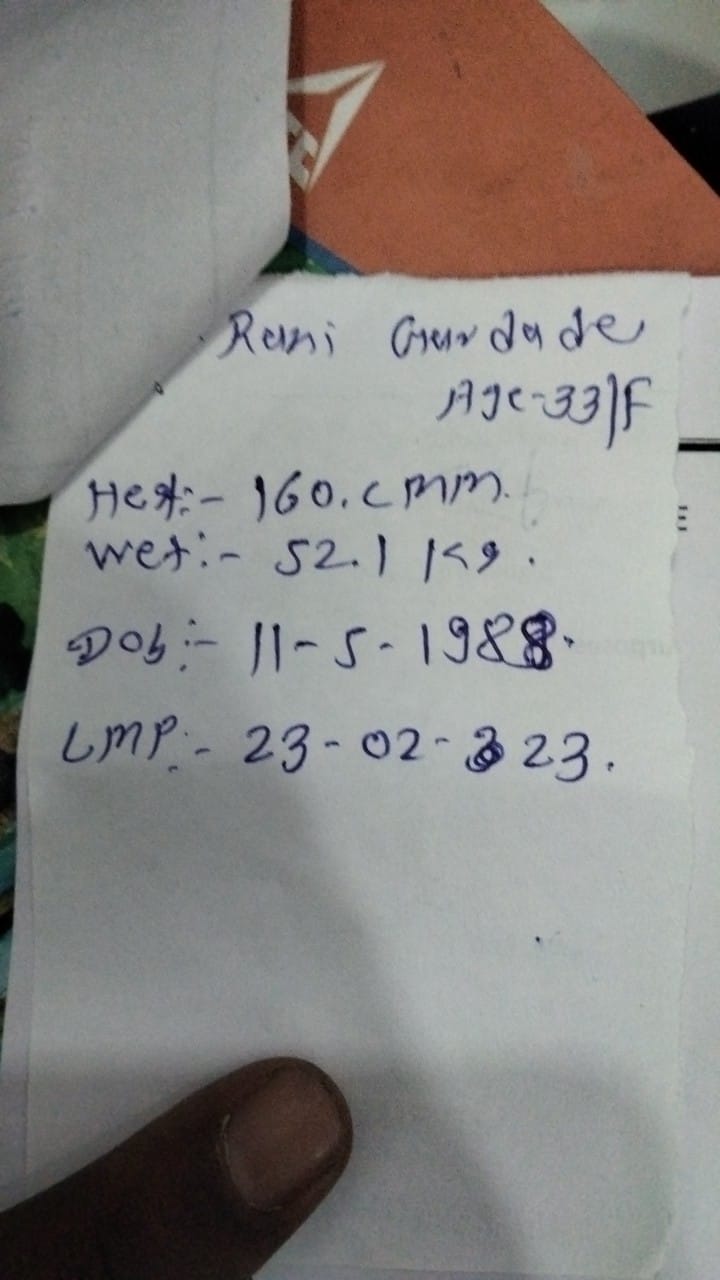 Rani Gurdade
Age-33/F
Het:- 160.cmm.
Wet:- 52.1 Kg.
Dob:- 11-5-1988.
LMP:- 23-02-23.
E